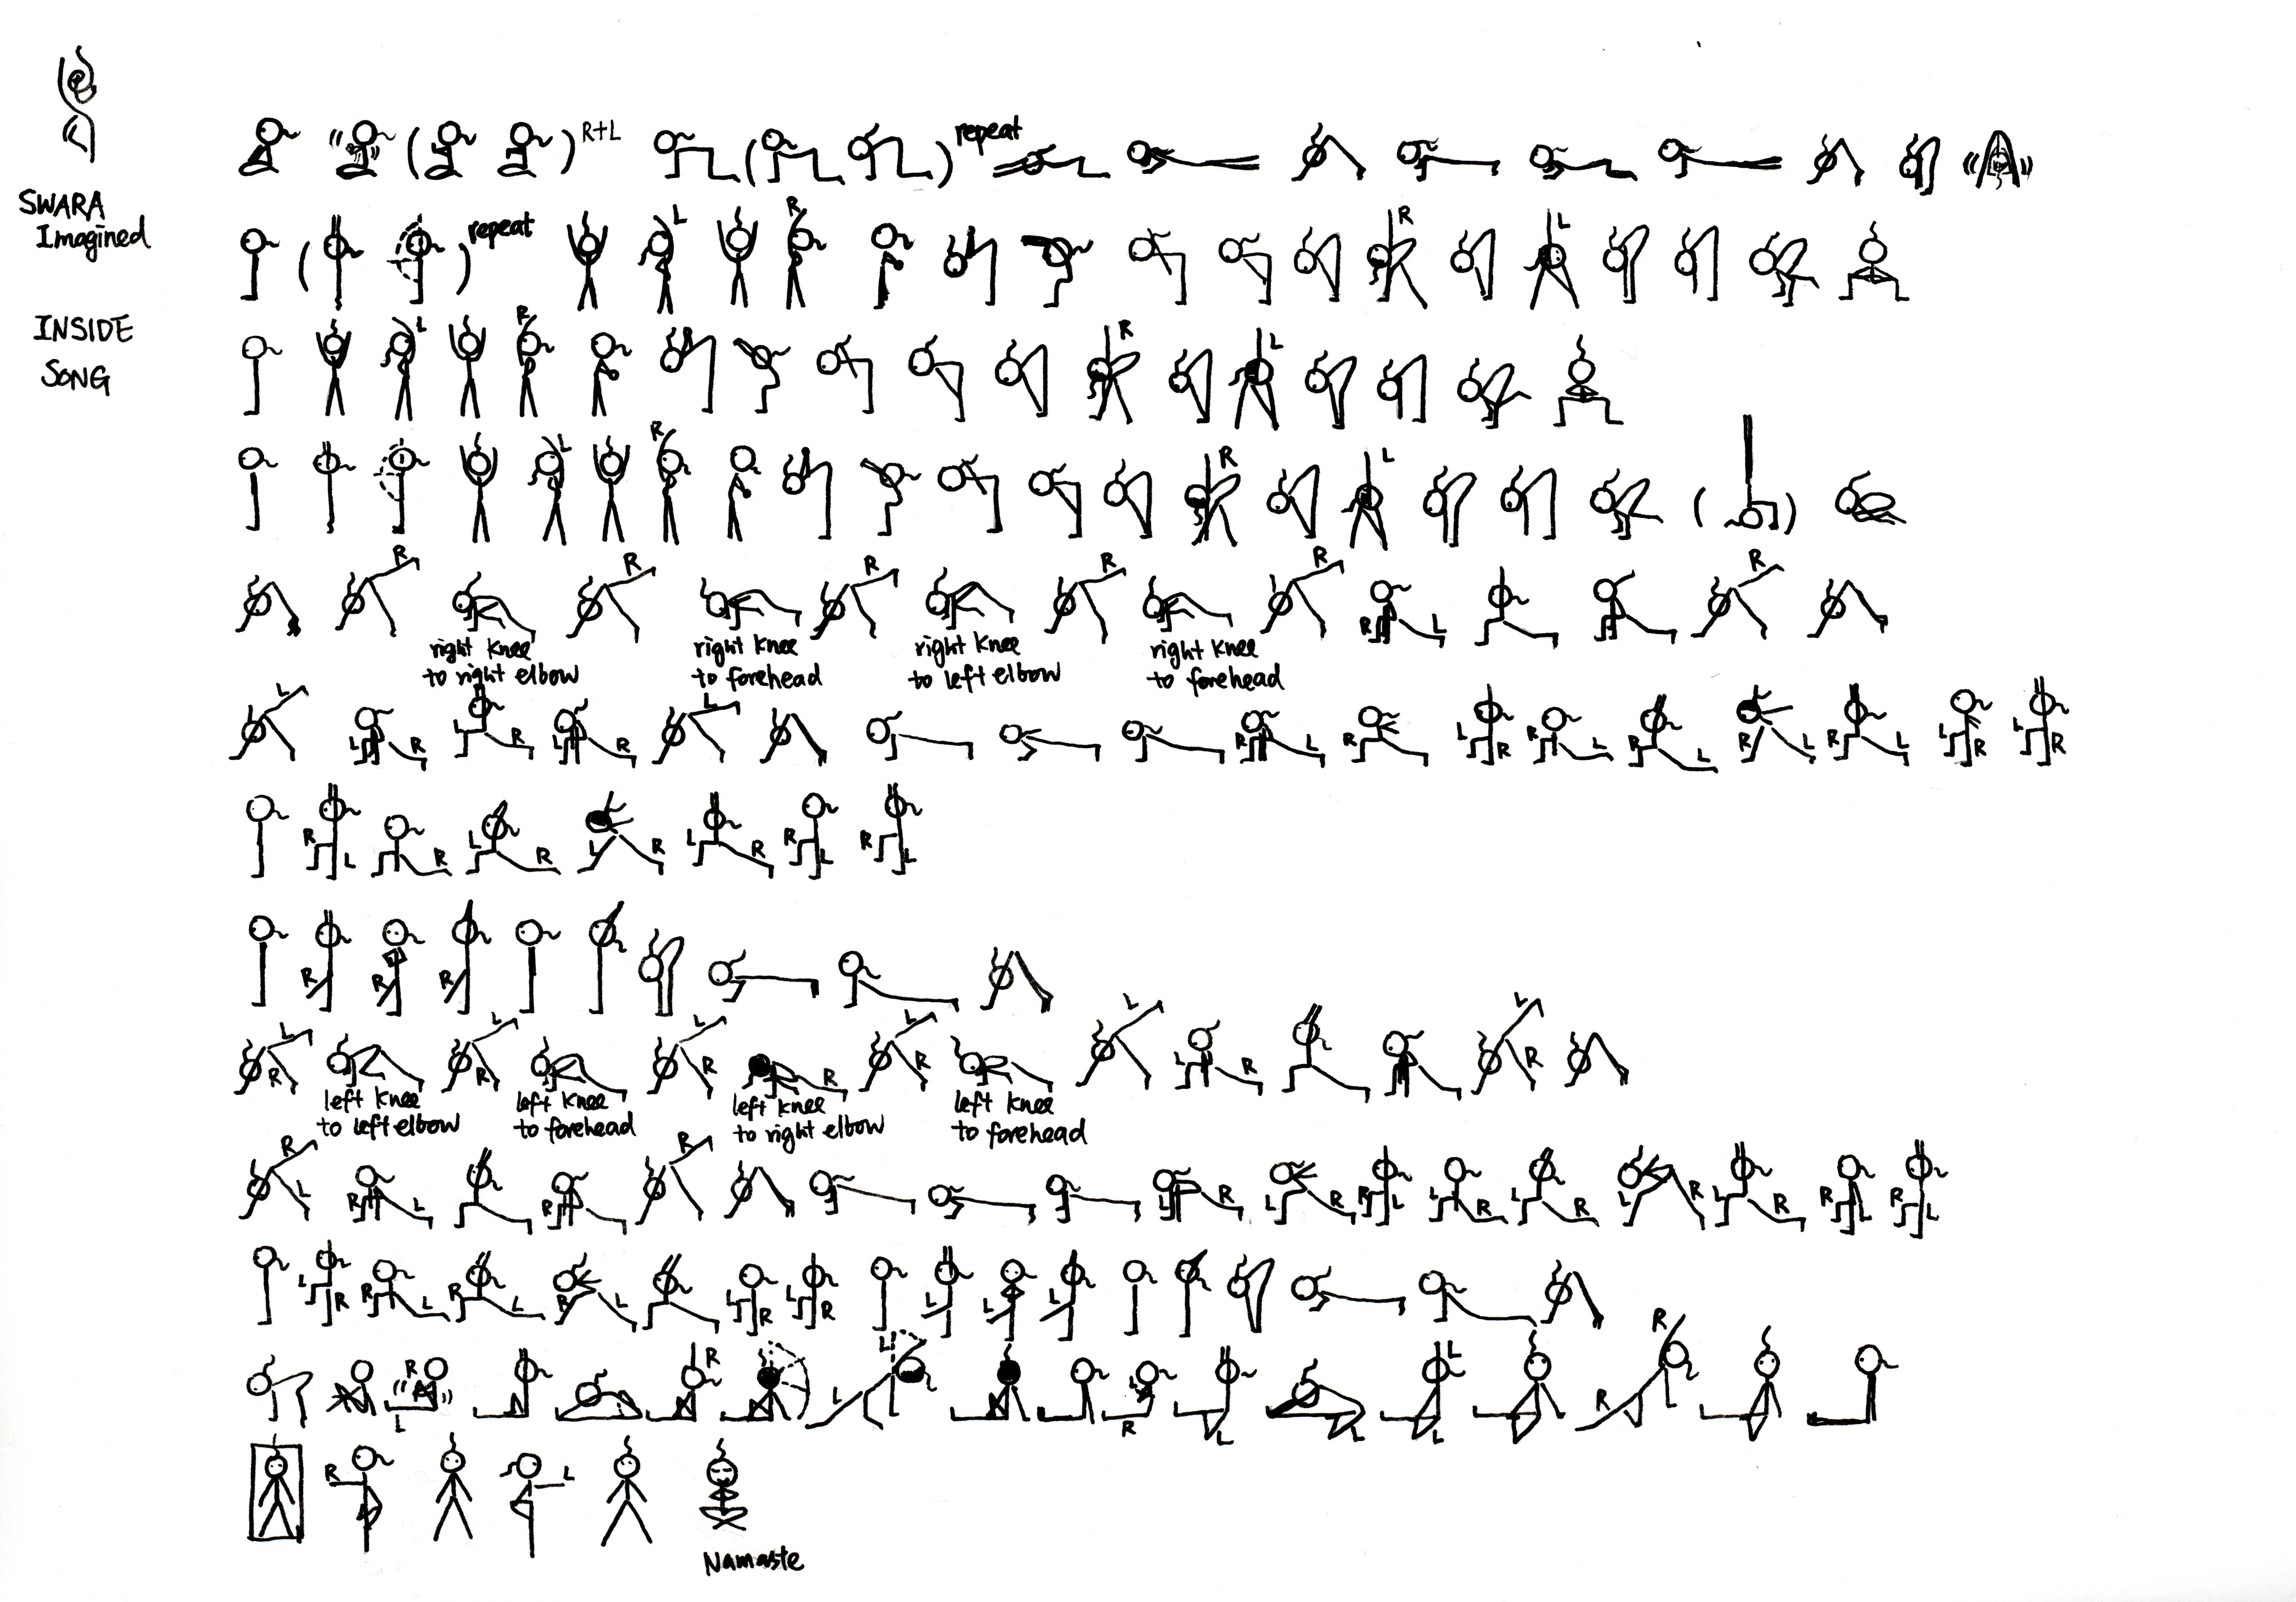 R+L repeat
SWARA
Imagined
repeat L R R L
INSIDE
SONG
L R R L
L R R L
R R R R R R L R
right knee
to right elbow
right knee
to forehead
right knee
to left elbow
right knee
to forehead
L L R L R L R L R L R R L R L R L R L R L R L R
R L R L R L R L R R L R L
R R R
L R L R L R L R L R L R
left knee
to left elbow
left knee
to forehead
left knee
to right elbow
left knee
to forehead
R L R L R R R L R R L L R L R L R L R R L R L
L R R L R L R L L R L R L L L
R L R L L R L L L L R
R L
Namaste